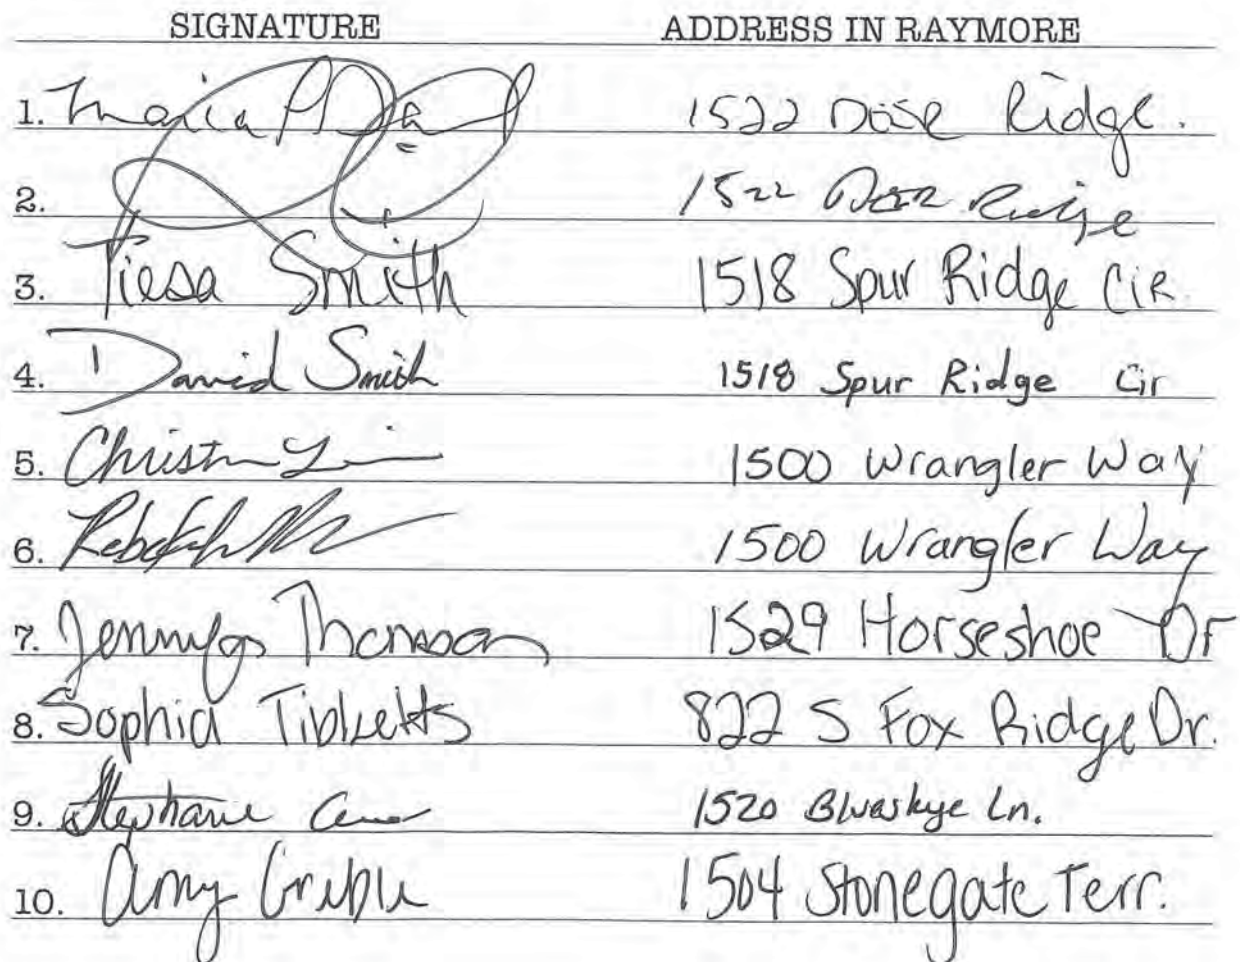 SIGNATURE ADDRESS IN RAYMORE
1. Maria 1522 Ridge.
2. 1522 Ridge
3. Tiesa Smith 1518 Spur Ridge CIR
4. David Smith 1518 Spur Ridge Cir
5. 1500 Wrangler Way
6. 1500 Wrangler Way
7. Thomson 1529 Horseshoe Dr
8. Sophia Tibbetts 822 S Fox Ridge Dr.
9. Stephanie 1520 Blueskye Ln.
10. Amy Grible 1504 Stonegate Terr.